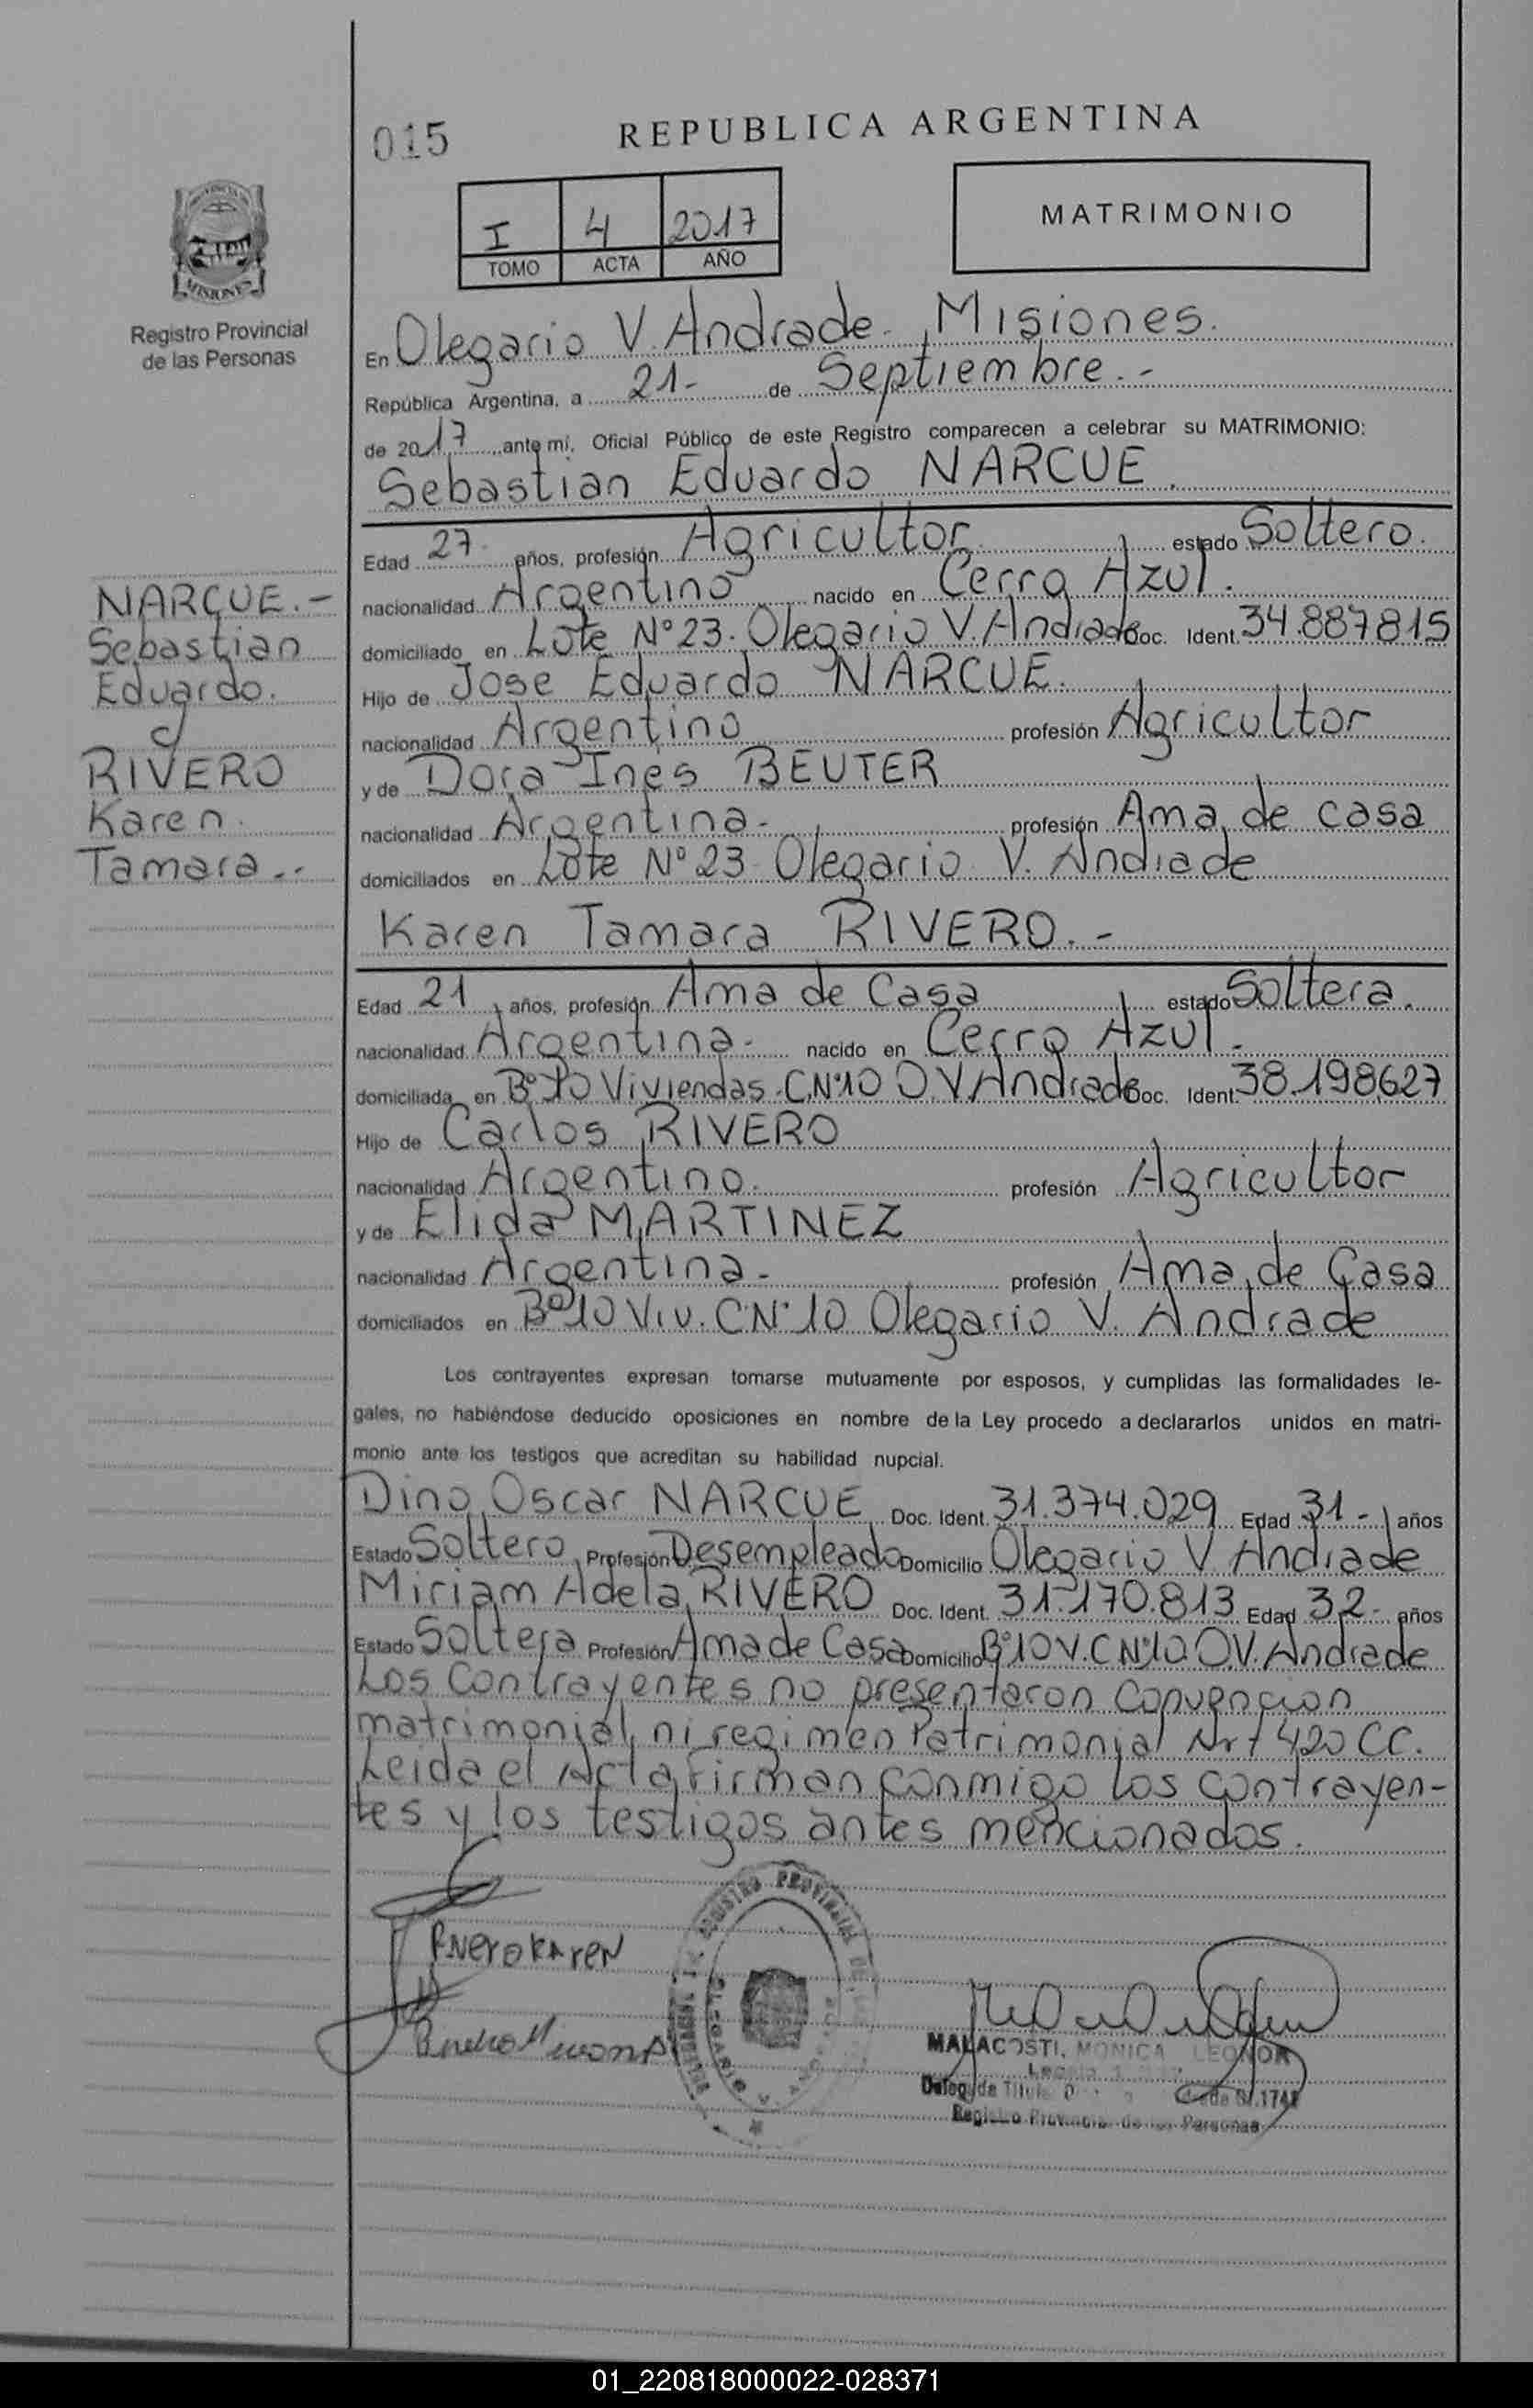 015
REPUBLICA ARGENTINA
I 4 2017
TOMO ACTA AÑO
MATRIMONIO
PROVINCIA DE
MISIONES
Registro Provincial
de las Personas
En Olegario V. Andrade. Misiones.
República Argentina, a 21- de Septiembre.-
de 2017 ante mí, Oficial Público de este Registro comparecen a celebrar su MATRIMONIO:
Sebastian Eduardo NARCUE.
Edad 27 años, profesión Agricultor. estado Soltero.
nacionalidad Argentino nacido en Cerro Azul.
domiciliado en Lote Nº 23. Olegario V. Andrade Doc. Ident. 34.887815
Hijo de Jose Eduardo NARCUE.
nacionalidad Argentino profesión Agricultor
y de Dora Ines BEUTER
nacionalidad Argentina- profesión Ama de casa
domiciliados en Lote Nº 23 Olegario V. Andrade
NARCUE.-
Sebastian
Eduardo.
y
RIVERO
Karen.
Tamara.-
Karen Tamara RIVERO.-
Edad 21 años, profesión Ama de Casa estado Soltera.
nacionalidad Argentina- nacido en Cerro Azul.
domiciliada en Bº 10 Viviendas. C.Nº10 O.V. Andrade Doc. Ident. 38.198627
Hijo de Carlos RIVERO
nacionalidad Argentino. profesión Agricultor
y de Elida MARTINEZ
nacionalidad Argentina- profesión Ama de Casa
domiciliados en Bº 10 Viv. C.Nº 10 Olegario V. Andrade
Los contrayentes expresan tomarse mutuamente por esposos, y cumplidas las formalidades le-
gales, no habiéndose deducido oposiciones en nombre de la Ley procedo a declararlos unidos en matri-
monio ante los testigos que acreditan su habilidad nupcial.
Dino Oscar NARCUE Doc. Ident. 31.374.029 Edad 31- años
Estado Soltero Profesión Desempleado Domicilio Olegario V. Andrade
Miriam Adela RIVERO Doc. Ident. 31.170.813 Edad 32- años
Estado Soltera Profesión Ama de Casa Domicilio Bº10 V. C Nº10 O.V. Andrade
Los Contrayentes no presentaron Convencion
matrimonial, ni regimen Patrimonial Art 420 CC.
Leida el Acta, Firman conmigo los contrayen-
tes y los testigos antes mencionados.
Rivero Karen
REGISTRO PROVINCIAL DE
MALACOSTI, MONICA LEONOR
Registro Provincial de las Personas
01_220818000022-028371